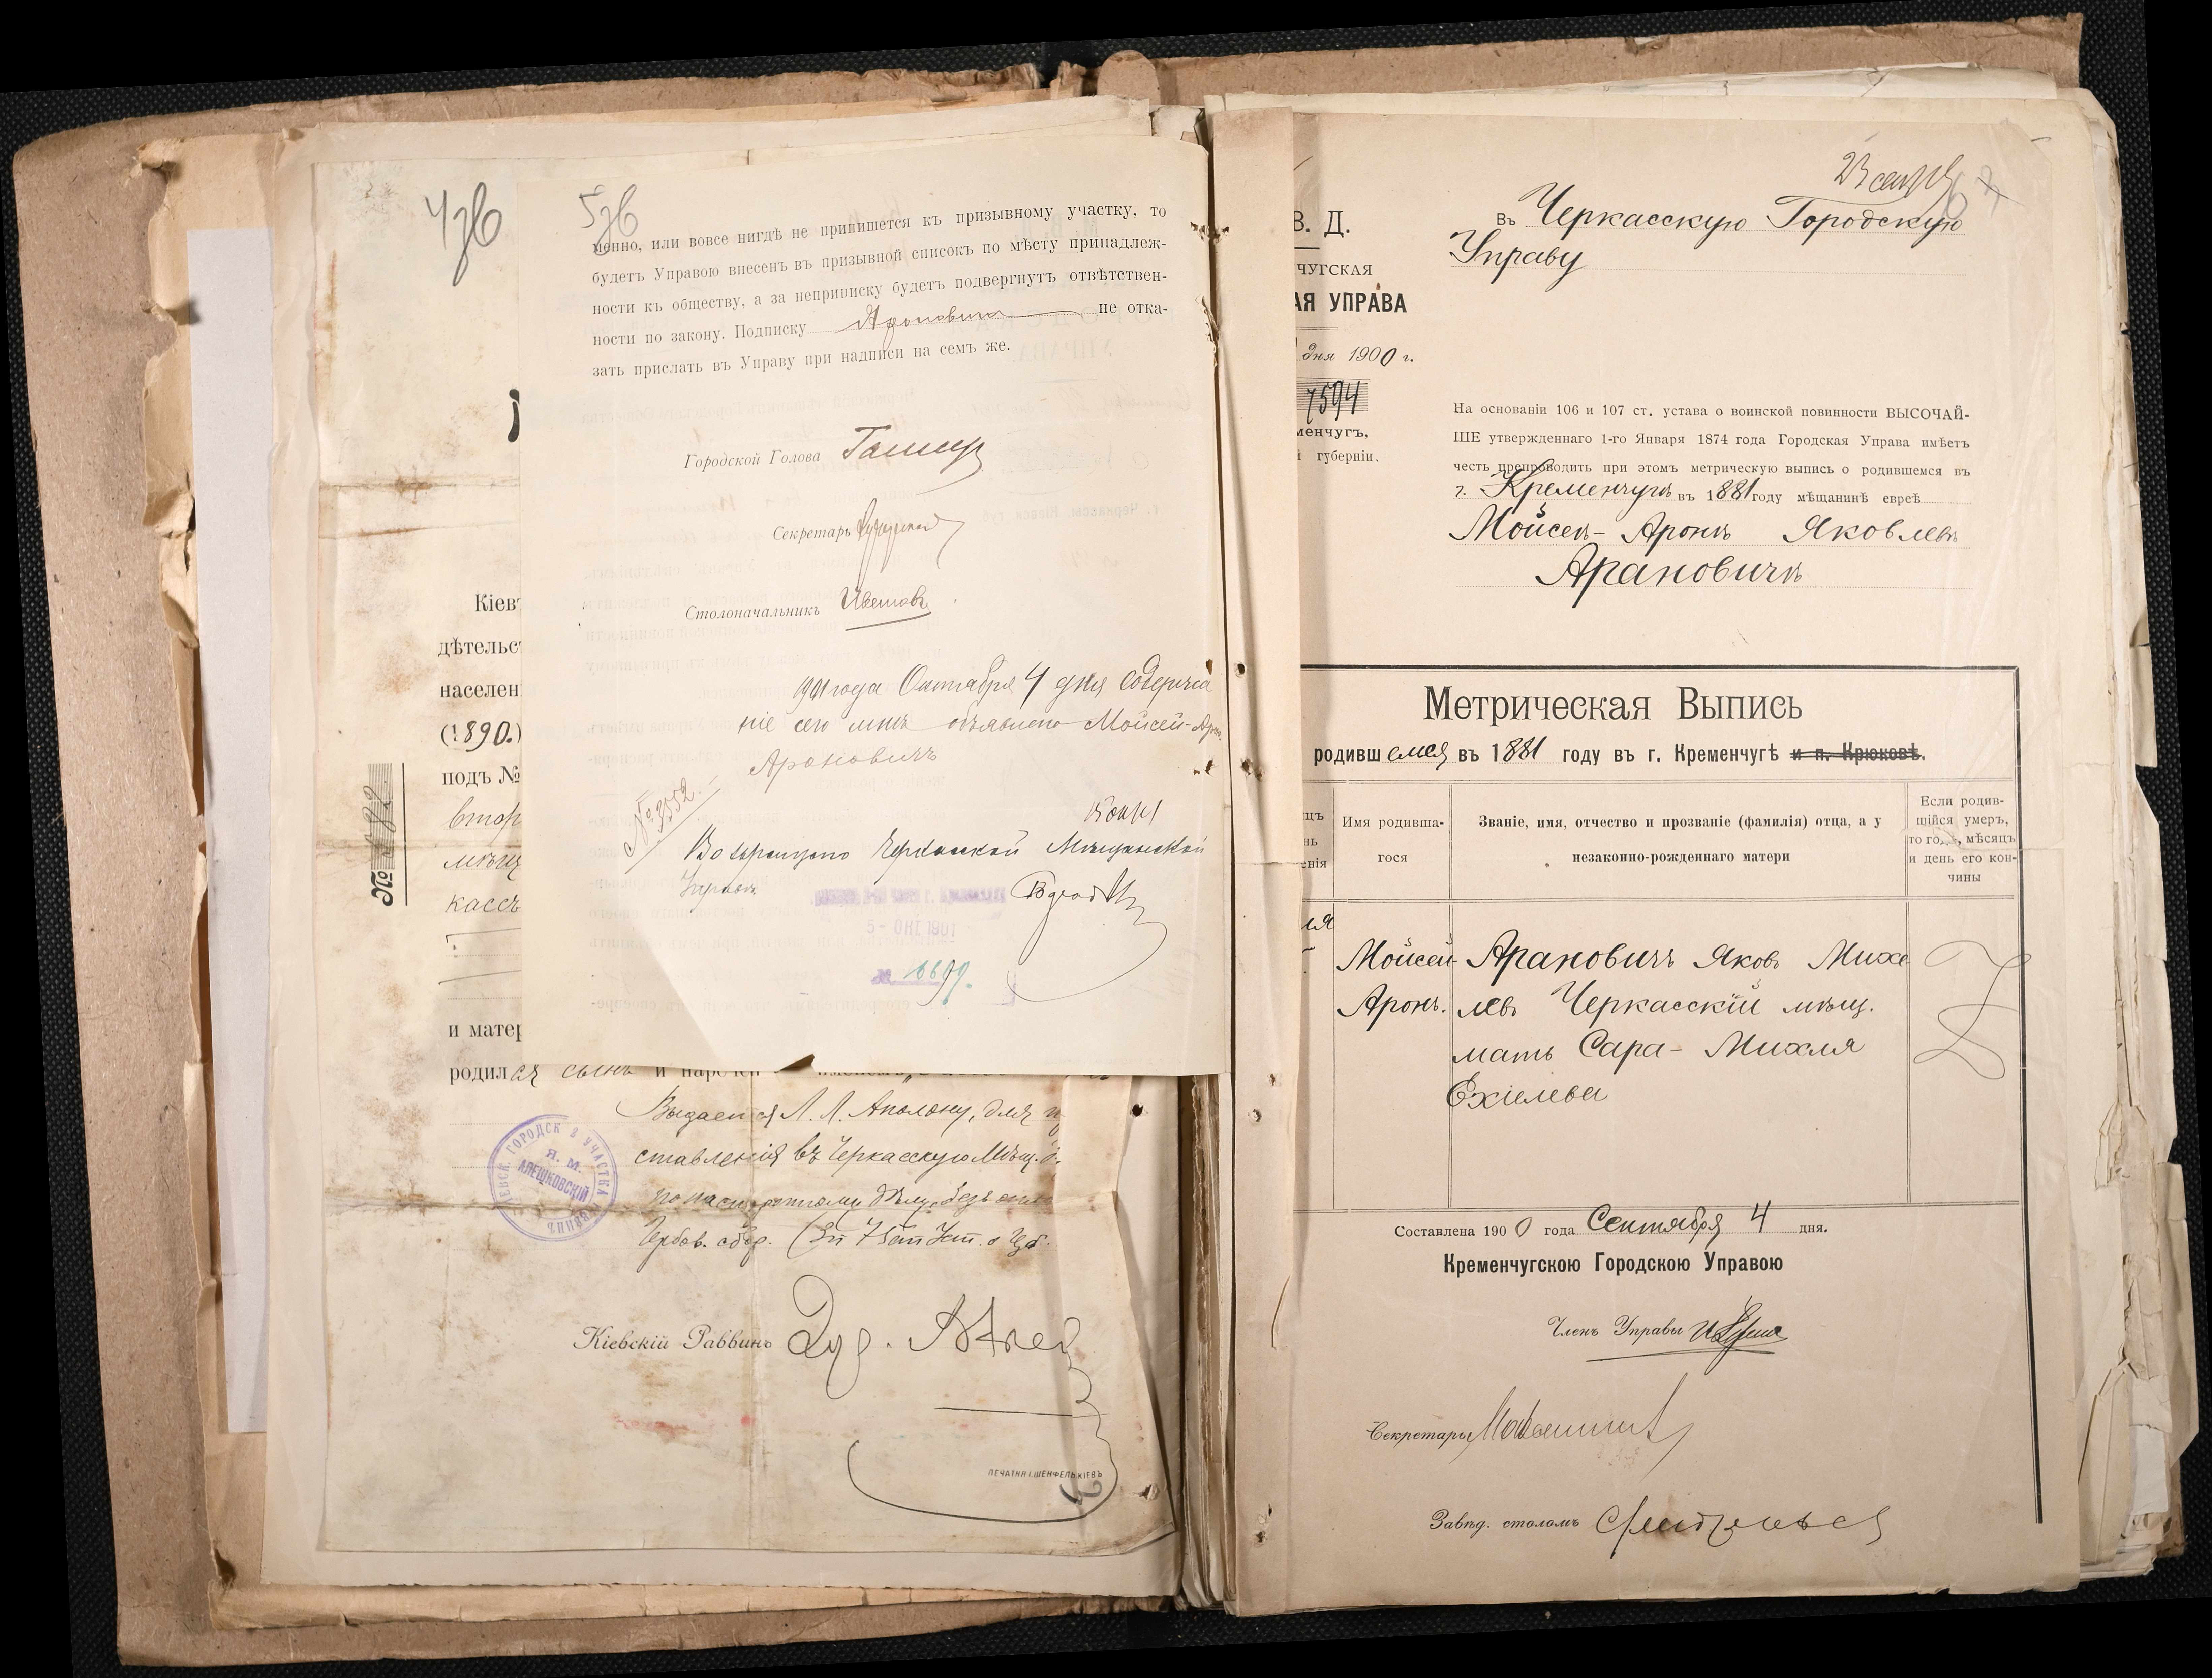 4 об
5 об
менно, или вовсе нигдѣ не припишется къ призывному участку, то
будетъ Управою внесенъ въ призывной списокъ по мѣсту принадлеж-
ности къ обществу, а за неприписку будетъ подвергнутъ отвѣтствен-
ности по закону. Подписку не отка-
зать прислать въ Управу при надписи на семъ же.
Городской Голова
Секретарь
Столоначальникъ Цвѣтовъ
1901 года Октября 4 дня содержа
ніе сего мнѣ объявлено Мойсей-Арон
Арановичъ
№ 3552.
Возвращено Черкасской Мѣщанской
Управѣ
5 - ОКТ 1901
№ 6699.
Кіев
дѣтельс
населен
(1890.)
подъ №
втор
мѣщ
касс
и матер
родился сынъ и нареченъ именемъ
№ 882
Выдается Л. Л. Аполону, для п
ставленія въ Черкасскую Мѣщ.
Гербов. сбор.
ГОРОДСК 2 УЧАСТКА
Я. М.
АЛЕШКОВСКІЙ
Кіевскій Раввинъ
ПЕЧАТНЯ І. ШЕНФЕЛЬ КІЕВЪ
В. Д.
ЧУГСКАЯ
АЯ УПРАВА
дня 1900 г.
7594
менчугъ,
й губерніи.
Въ Черкасскую Городскую
Управу
На основаніи 106 и 107 ст. устава о воинской повинности ВЫСОЧАЙ-
ШЕ утвержденнаго 1-го Января 1874 года Городская Управа имѣетъ
честь препроводить при этомъ метрическую выпись о родившемся въ
г. Кременчугѣ въ 1881 году мѣщанинѣ евреѣ
Мойсеѣ-Аронѣ Яковлевѣ
Арановичѣ
Метрическая Выпись
родившемся въ 1881 году въ г. Кременчугѣ и п. Крюковѣ.
цъ
нь
енія
Имя родивша-
гося
Званіе, имя, отчество и прозваніе (фамилія) отца, а у
незаконно-рожденнаго матери
Если родив-
шійся умеръ,
то годъ, мѣсяцъ
и день его кон-
чины
ля
Мойсей-
Аронъ.
Арановичъ Яковъ Михе
левъ Черкасскій мѣщ.
мать Сара-Михля
Ехіелева
Составлена 1900 года Сентября 4 дня.
Кременчугскою Городскою Управою
Членъ Управы
Секретарь
Завѣд. столомъ